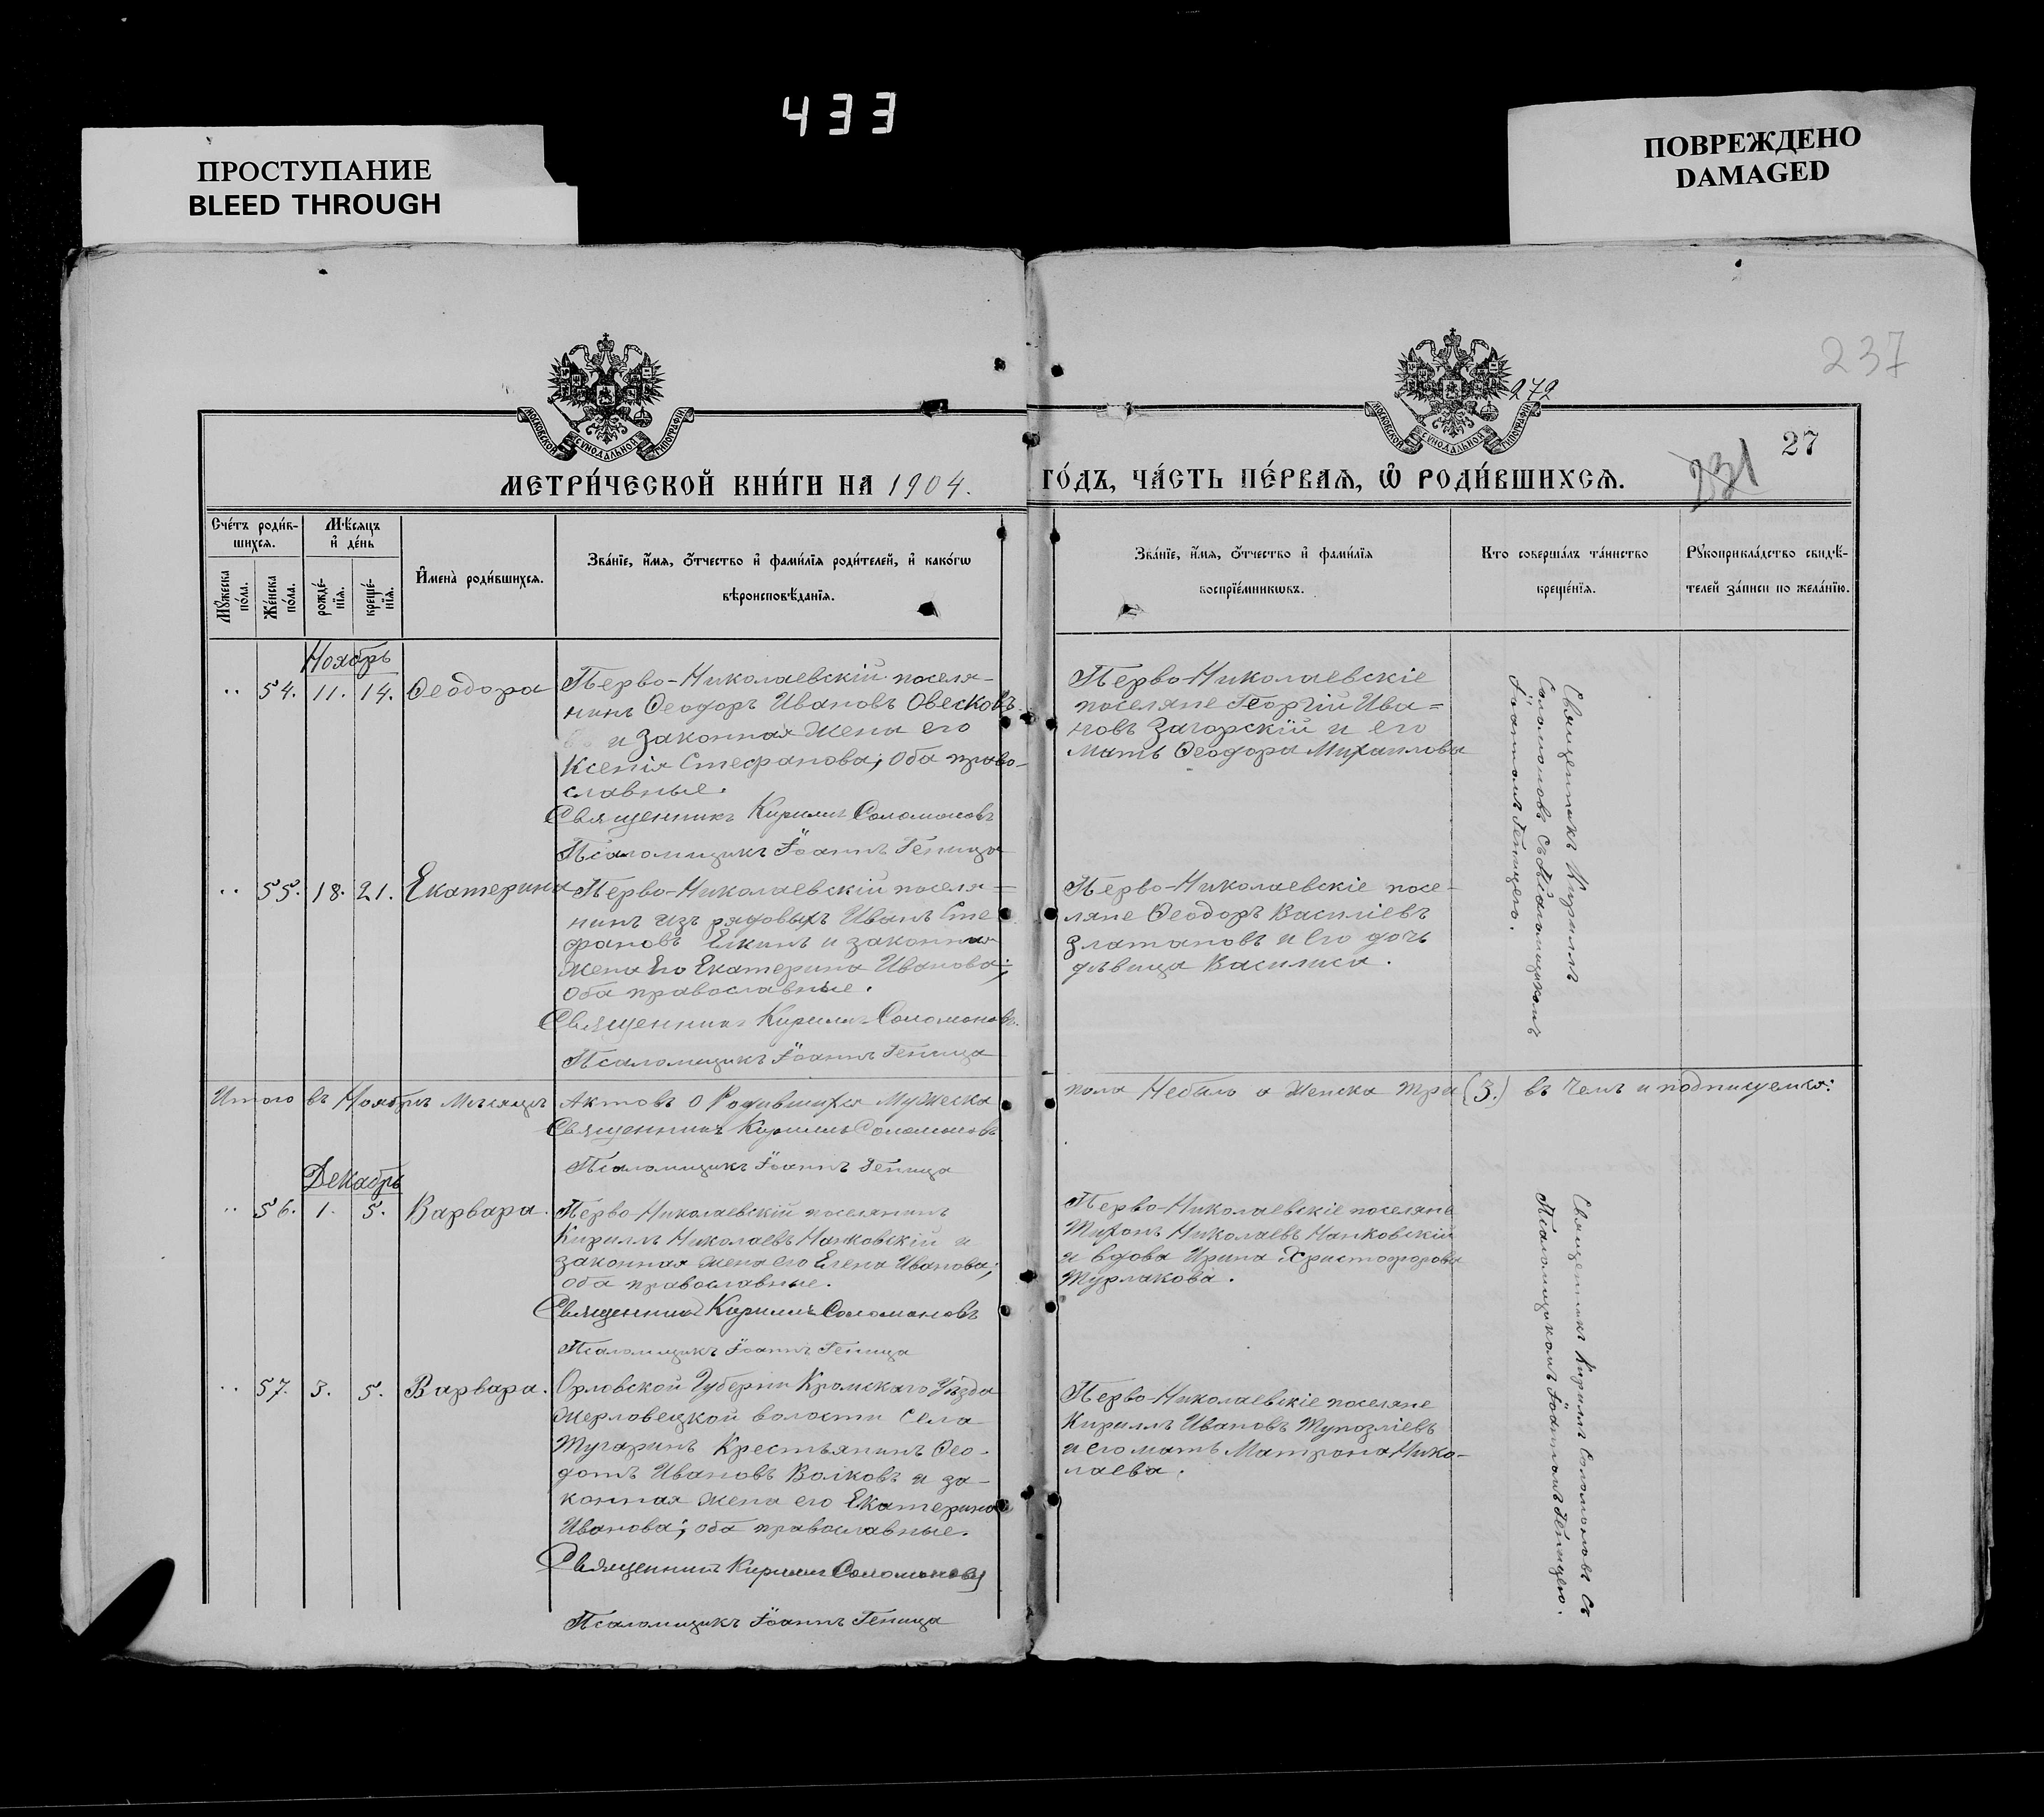 433
ПРОСТУПАНИЕ
BLEED THROUGH
ПОВРЕЖДЕНО
DAMAGED
237
272
27
231
МОСКОВСКОЙ СѴНОДАЛЬНОЙ ТИПОГРАФІИ
МОСКОВСКОЙ СѴНОДАЛЬНОЙ ТИПОГРАФІИ
МЕТРИ́ЧЕСКОЙ КНИ́ГИ НА 1904. ГО́ДЪ, ЧА́СТЬ ПЕ́РВАѦ, Ѿ РОДИ́ВШИХСѦ.
Сче́тъ роди́в-
шихсѧ.
Мꙋ́жеска
по́ла.
Же́нска
по́ла.
Мѣ́сѧцъ
и҆ де́нь
рожде́-
нїѧ.
креще́-
нїѧ.
И҆мена̀ роди́вшихсѧ.
Зва́нїе, и҆́мѧ, ѻ҆́тчество и҆ фами́лїѧ роди́телей, и҆ како́гѡ
вѣроисповѣ́данїѧ.
Зва́нїе, и҆́мѧ, ѻ҆́тчество и҆ фами́лїѧ
воспрїе́мникѡвъ.
Кто соверша́лъ та́инство
креще́нїѧ.
Рꙋкоприкла́дство свидѣ́-
телей за́писи по жела́нїю.
Ноябрь
" 54. 11. 14. Ѳеодора
Перво-Николаевскій поселя-
нинъ Ѳеодоръ Ивановъ Овесковъ
и законная жена его
Ксенія Стефанова; оба право-
славные.
Священникъ Кириллъ Соломоновъ
Псаломщикъ Іоаннъ Гепица
Перво-Николаевскіе
поселяне Георгій Ива=
новъ Загорскій и его
мать Ѳеодора Михаилова
Священникъ Кириллъ
Соломоновъ съ Псаломщикомъ
Іоанномъ Гепицею.
" 55. 18. 21. Екатерина
Перво-Николаевскій поселя=
нинъ изъ рядовыхъ Иванъ Сте
фановъ Елкинъ и законная
жена его Екатерина Иванова;
оба православные.
Священникъ Кириллъ Соломоновъ.
Псаломщикъ Іоаннъ Гепица
Перво-Николаевскіе посе-
ляне Ѳеодоръ Василіевъ
Златановъ и его дочь
дѣвица Василиса.
Итого въ Ноябрѣ мѣсяцѣ Актовъ о Родившихся Мужеска пола Небыло а женска три (3.) въ чемъ и подписуемся:
Священникъ Кириллъ Соломоновъ
Псаломщикъ Іоаннъ Гепица
Декабрь
" 56. 1. 5. Варвара.
Перво-Николаевскій поселянинъ
Кириллъ Николаевъ Нанковскій и
законная жена его Елена Иванова;
оба православные.
Священникъ Кириллъ Соломоновъ
Псаломщикъ Іоаннъ Гепица
Перво-Николаевскіе поселяне
Тихонъ Николаевъ Нанковскій
и вдова Ирина Христофорова
Турлакова.
Священникъ Кириллъ Соломоновъ съ
Псаломщикомъ Іоанномъ Гепицею.
" 57. 3. 5. Варвара.
Орловской Губерніи Кромскаго Уѣзда
Жерловецкой волости Села
Тугаринъ Крестьянинъ Ѳео-
дотъ Ивановъ Волковъ и за-
конная жена его Екатерина
Иванова; оба православные.
Священникъ Кириллъ Соломоновъ
Псаломщикъ Іоаннъ Гепица
Перво-Николаевскіе поселяне
Кириллъ Ивановъ Тупозліевъ
и его мать Матрона Нико-
лаева.